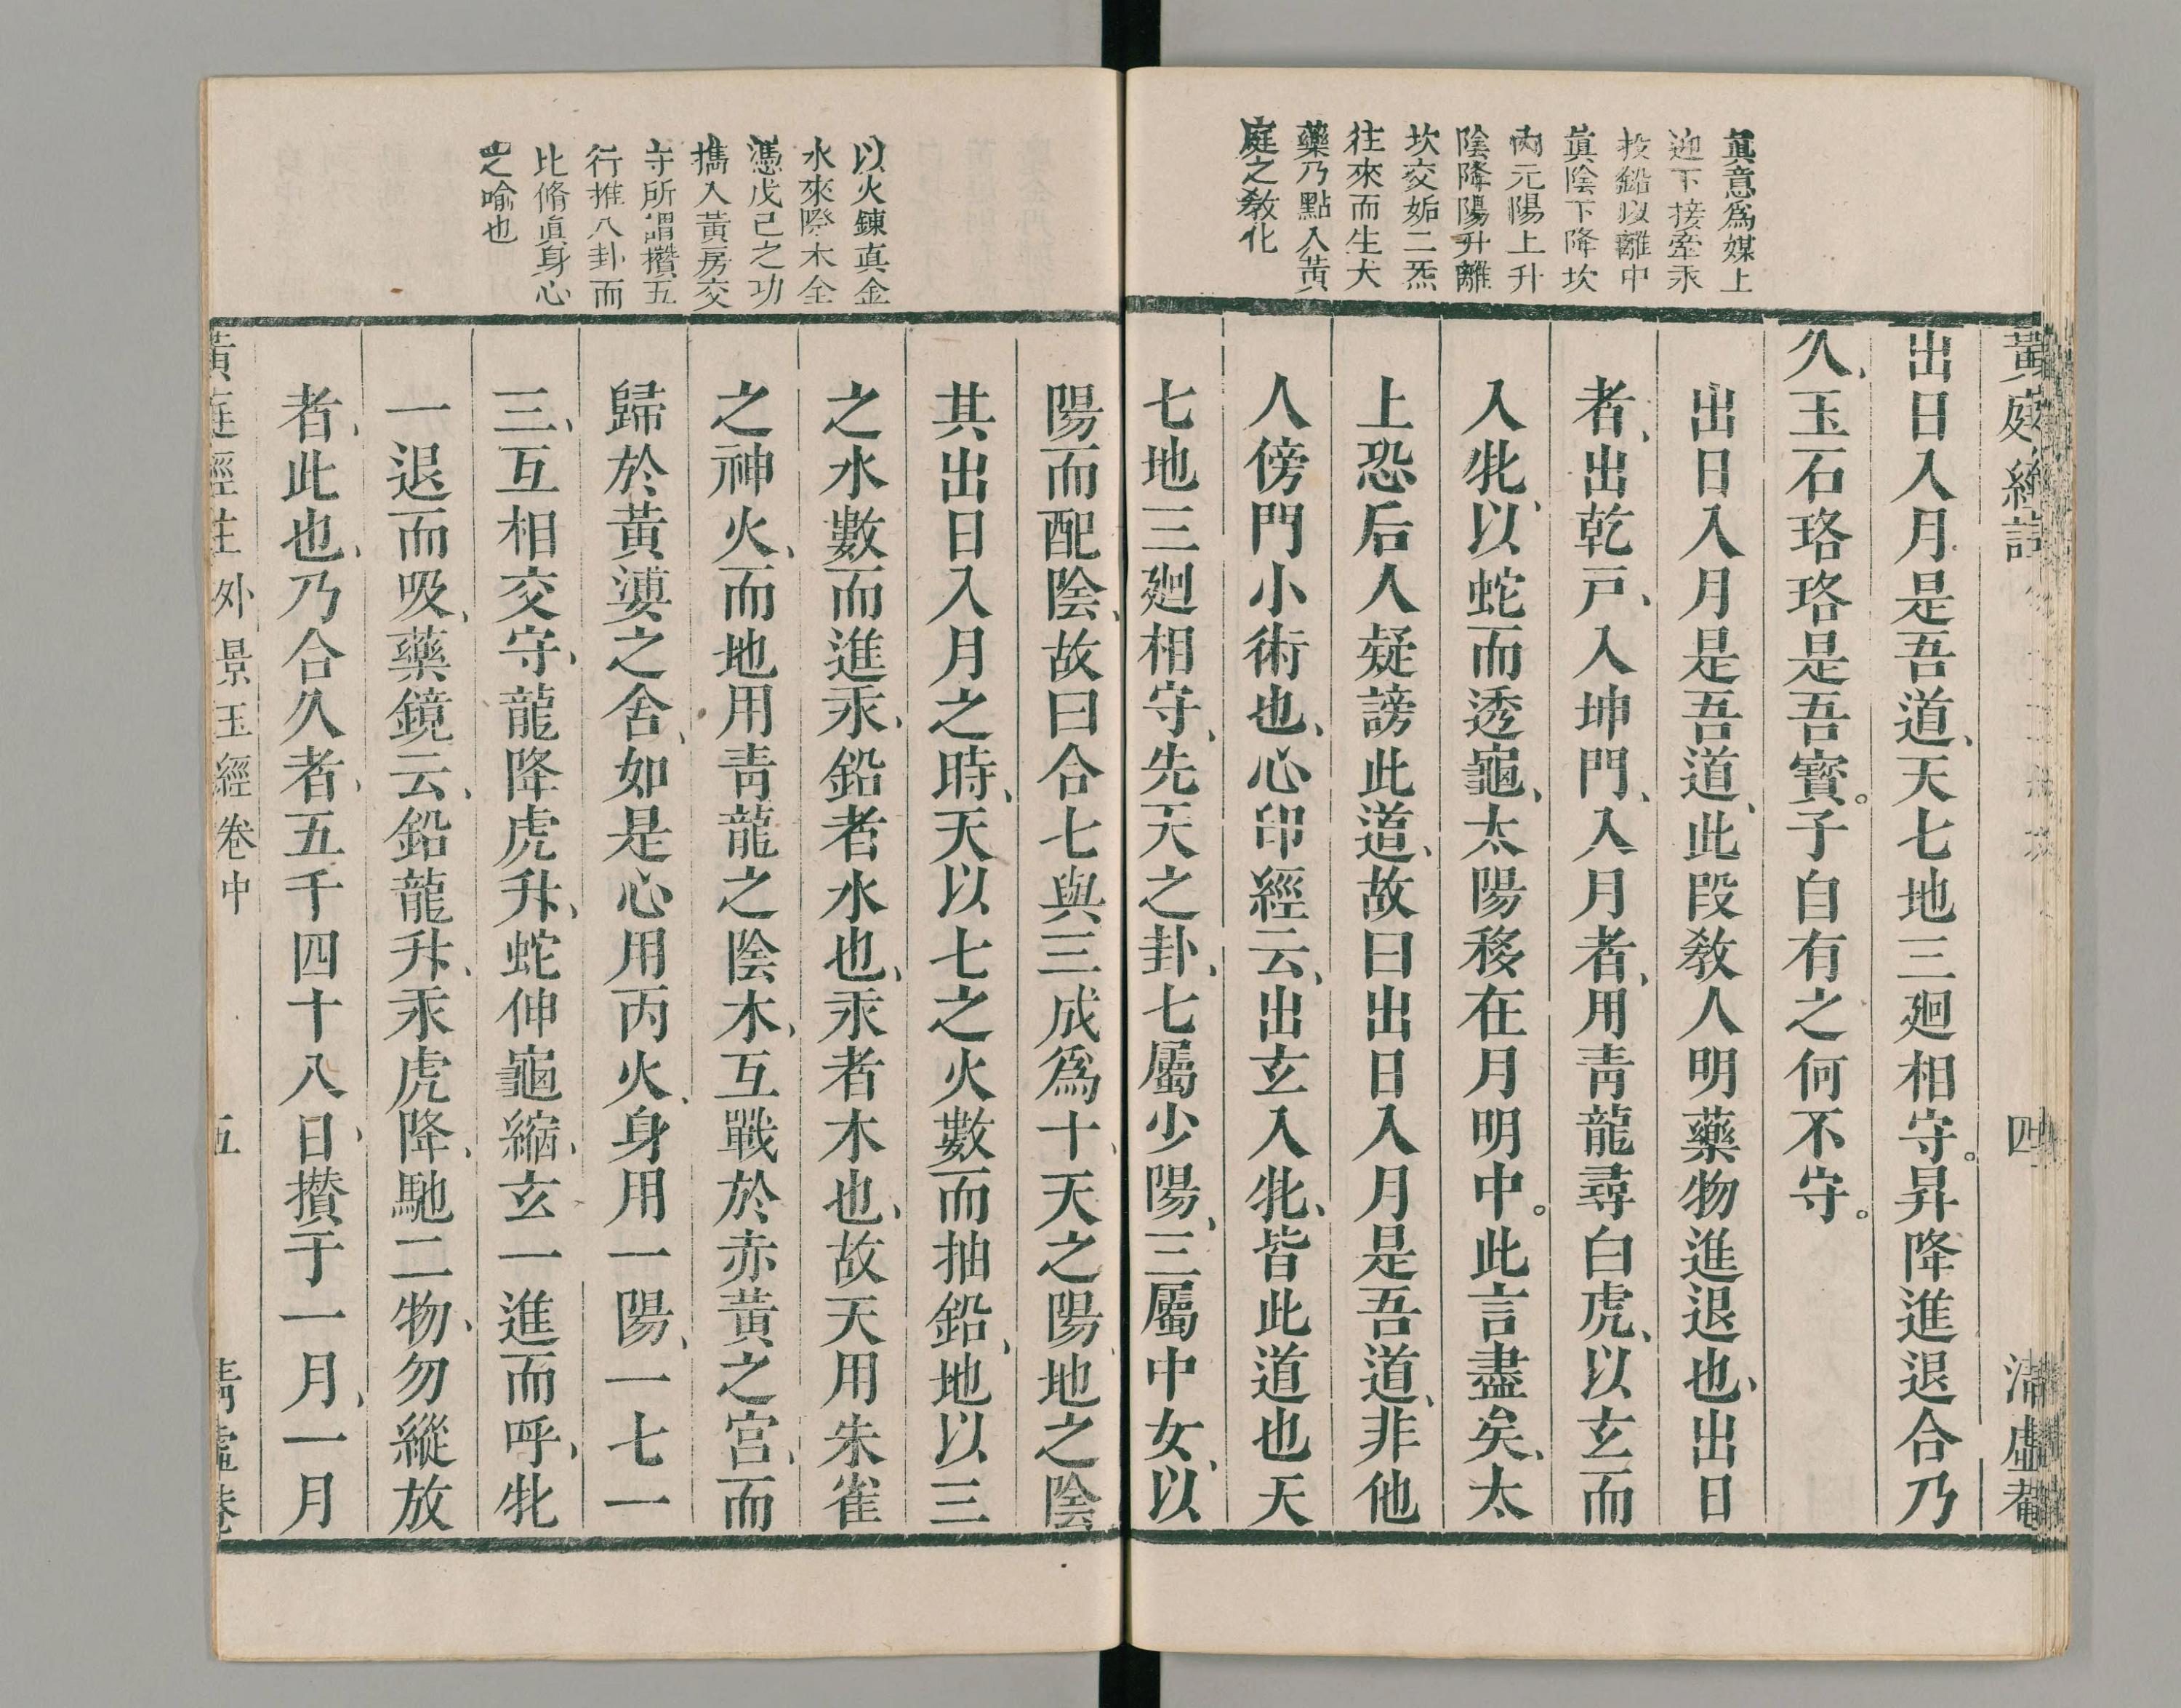 眞意爲媒上
迎下接牽汞
投鉛以離中
眞陰下降坎
內元陽上升
陰降陽升離
坎交姤二炁
往來而生大
藥乃點入黃
庭之敎化
黃庭經註
四
清虛菴
出日入月是吾道、天七地三廻相守。昇降進退合乃
久、玉石珞珞是吾寳。子自有之何不守。
出日入月是吾道、此段敎人明藥物進退也、出日
者、出乾戶、入坤門、入月者、用靑龍尋白虎、以玄而
入牝、以蛇而透龜、太陽移在月明中。此言盡矣、太
上恐后人疑謗此道、故曰出日入月是吾道、非他
人傍門小術也、心印經云、出玄入牝、皆此道也天
七地三廻相守、先天之卦、七屬少陽、三屬中女、以
以火鍊真金
水來際木全
憑戊己之功
擕入黃房交
守所謂攢五
行推八卦而
比脩眞身心
之喻也
陽而配陰、故曰合七與三成爲十、天之陽地之陰
其出日入月之時、天以七之火數而抽鉛、地以三
之水數而進汞、鉛者水也、汞者木也、故天用朱雀
之神火、而地用靑龍之陰木、互戰於赤黃之宮、而
歸於黃𣸪之舍、如是心用丙火、身用一陽、一七一
三、互相交守、龍降虎升、蛇伸龜縮、玄一進而呼、牝
一退而吸、藥鏡云、鉛龍升、汞虎降、馳二物、勿縱放
者、此也、乃合久者、五千四十八日、攅于一月、一月
黃庭經註 外景玉經卷中
五
清虛菴